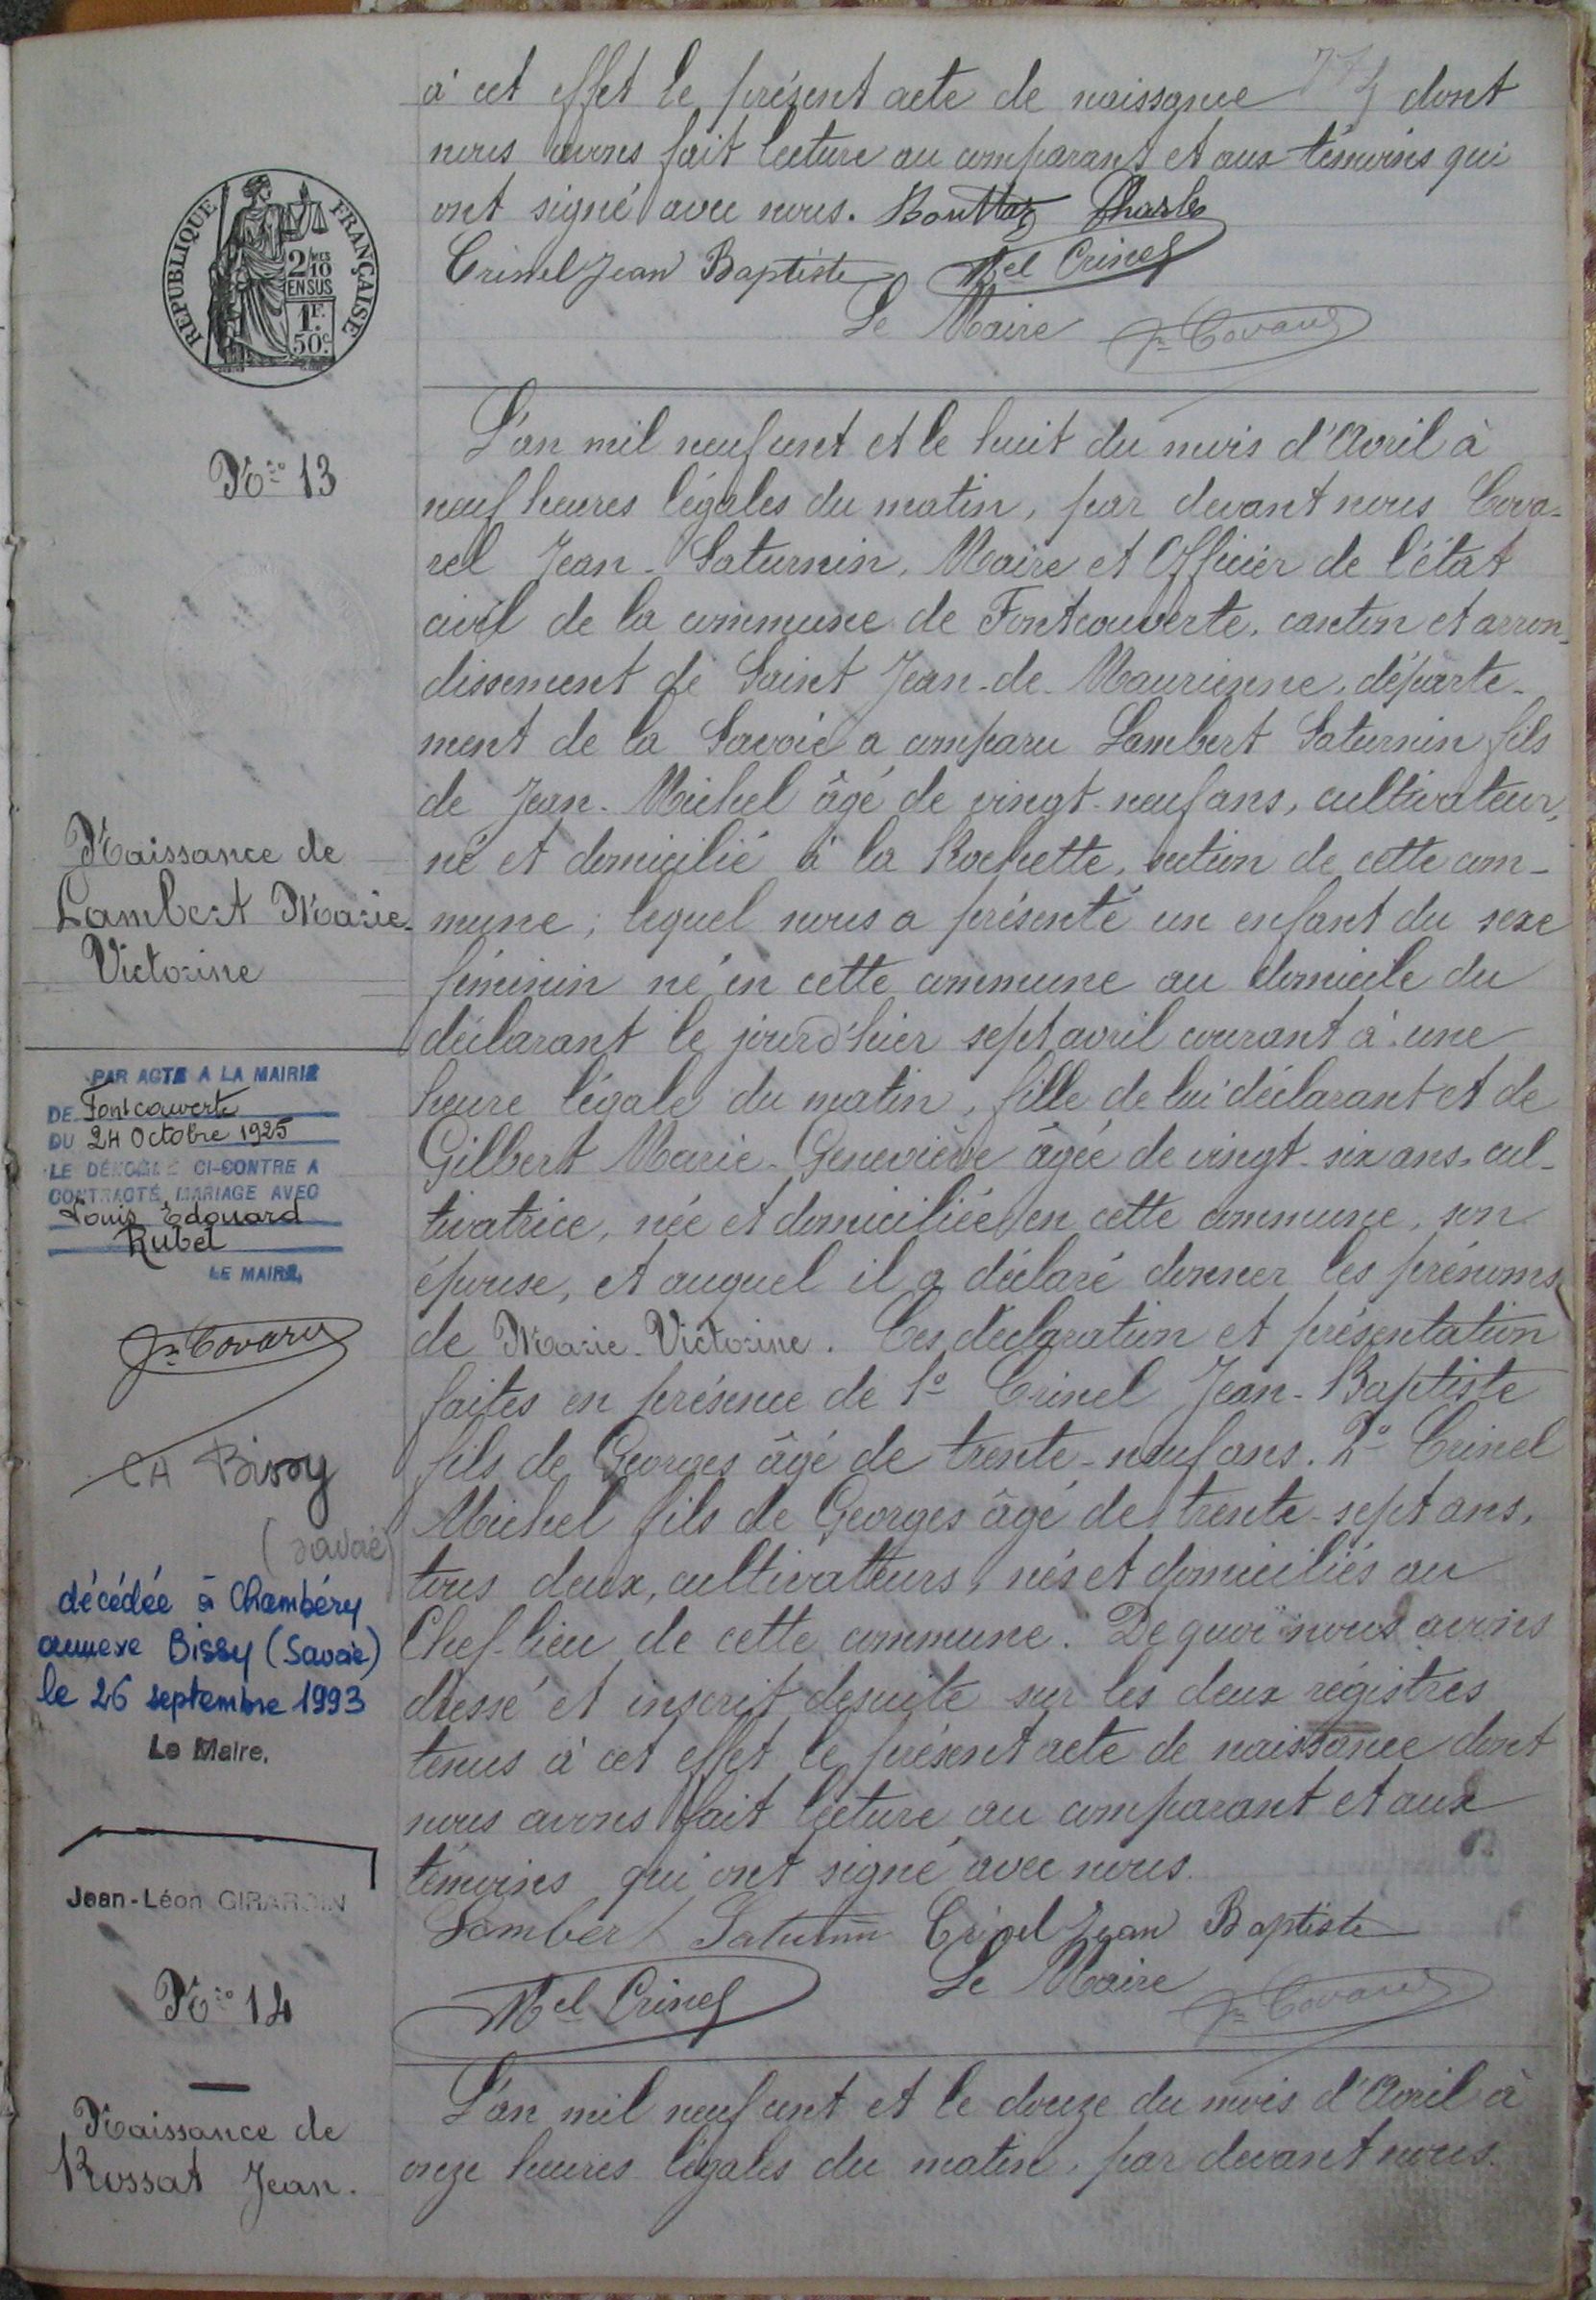 à cet effet le présent acte de naissance dont
nous avons fait lecture au comparant et aux témoins qui
ont signé avec nous. Bouttaz Charles
Crinel Jean Baptiste Mel Crinel
Le Maire Jn Covarel
REPUBLIQUE FRANÇAISE
2/10 EN SUS
1F.
50c
No 13
Naissance de
Lambert Marie-
Victorine
L'an mil neuf cent et le huit du mois d'Avril à
neuf heures légales du matin, par devant nous Cova-
rel Jean-Saturnin, Maire et Officier de l'état
civil de la commune de Fontcouverte, canton et arron-
dissement de Saint Jean-de-Maurienne, départe-
ment de la Savoie a comparu Lambert Saturnin fils
de Jean-Michel âgé de vingt-neuf ans, cultivateur,
né et domicilié à la Rochette, section de cette com-
mune; lequel nous a présenté un enfant du sexe
féminin né en cette commune au domicile du
déclarant le jourd'hier sept avril courant à une
heure légale du matin, fille de lui déclarant et de
Gilbert Marie-Geneviève âgée de vingt-six ans, cul-
tivatrice, née et domiciliée en cette commune, son
épouse, et auquel il a déclaré donner les prénoms
de Marie-Victorine. Ces déclaration et présentation
faites en présence de 1º Crinel Jean-Baptiste
fils de Georges âgé de trente-neuf ans. 2º Crinel
Michel fils de Georges âgé de trente-sept ans,
tous deux, cultivateurs, nés et domiciliés au
Chef-lieu de cette commune. De quoi nous avons
dressé et inscrit desuite sur les deux régistres
tenus à cet effet le présent acte de naissance dont
nous avons fait lecture au comparant et aux
témoins qui ont signé avec nous.
Lambert Saturnin Crinel Jean Baptiste
Mel Crinel Le Maire Jn Covarel
PAR ACTE A LA MAIRIE
DE Fontcouverte
DU 24 Octobre 1925
LE DÉNOMMÉ CI-CONTRE A
CONTRACTÉ MARIAGE AVEC
Louis Edouard
Rubel
LE MAIRE,
Jn Covarel
CH Bissy
(Savoie)
décédée à Chambéry
annexe Bissy (Savoie)
le 26 septembre 1993
Le Maire,
Jean-Léon GIRARDIN
No 14
Naissance de
Rossat Jean.
L'an mil neuf cent et le douze du mois d'Avril à
onze heures légales du matin, par devant nous.